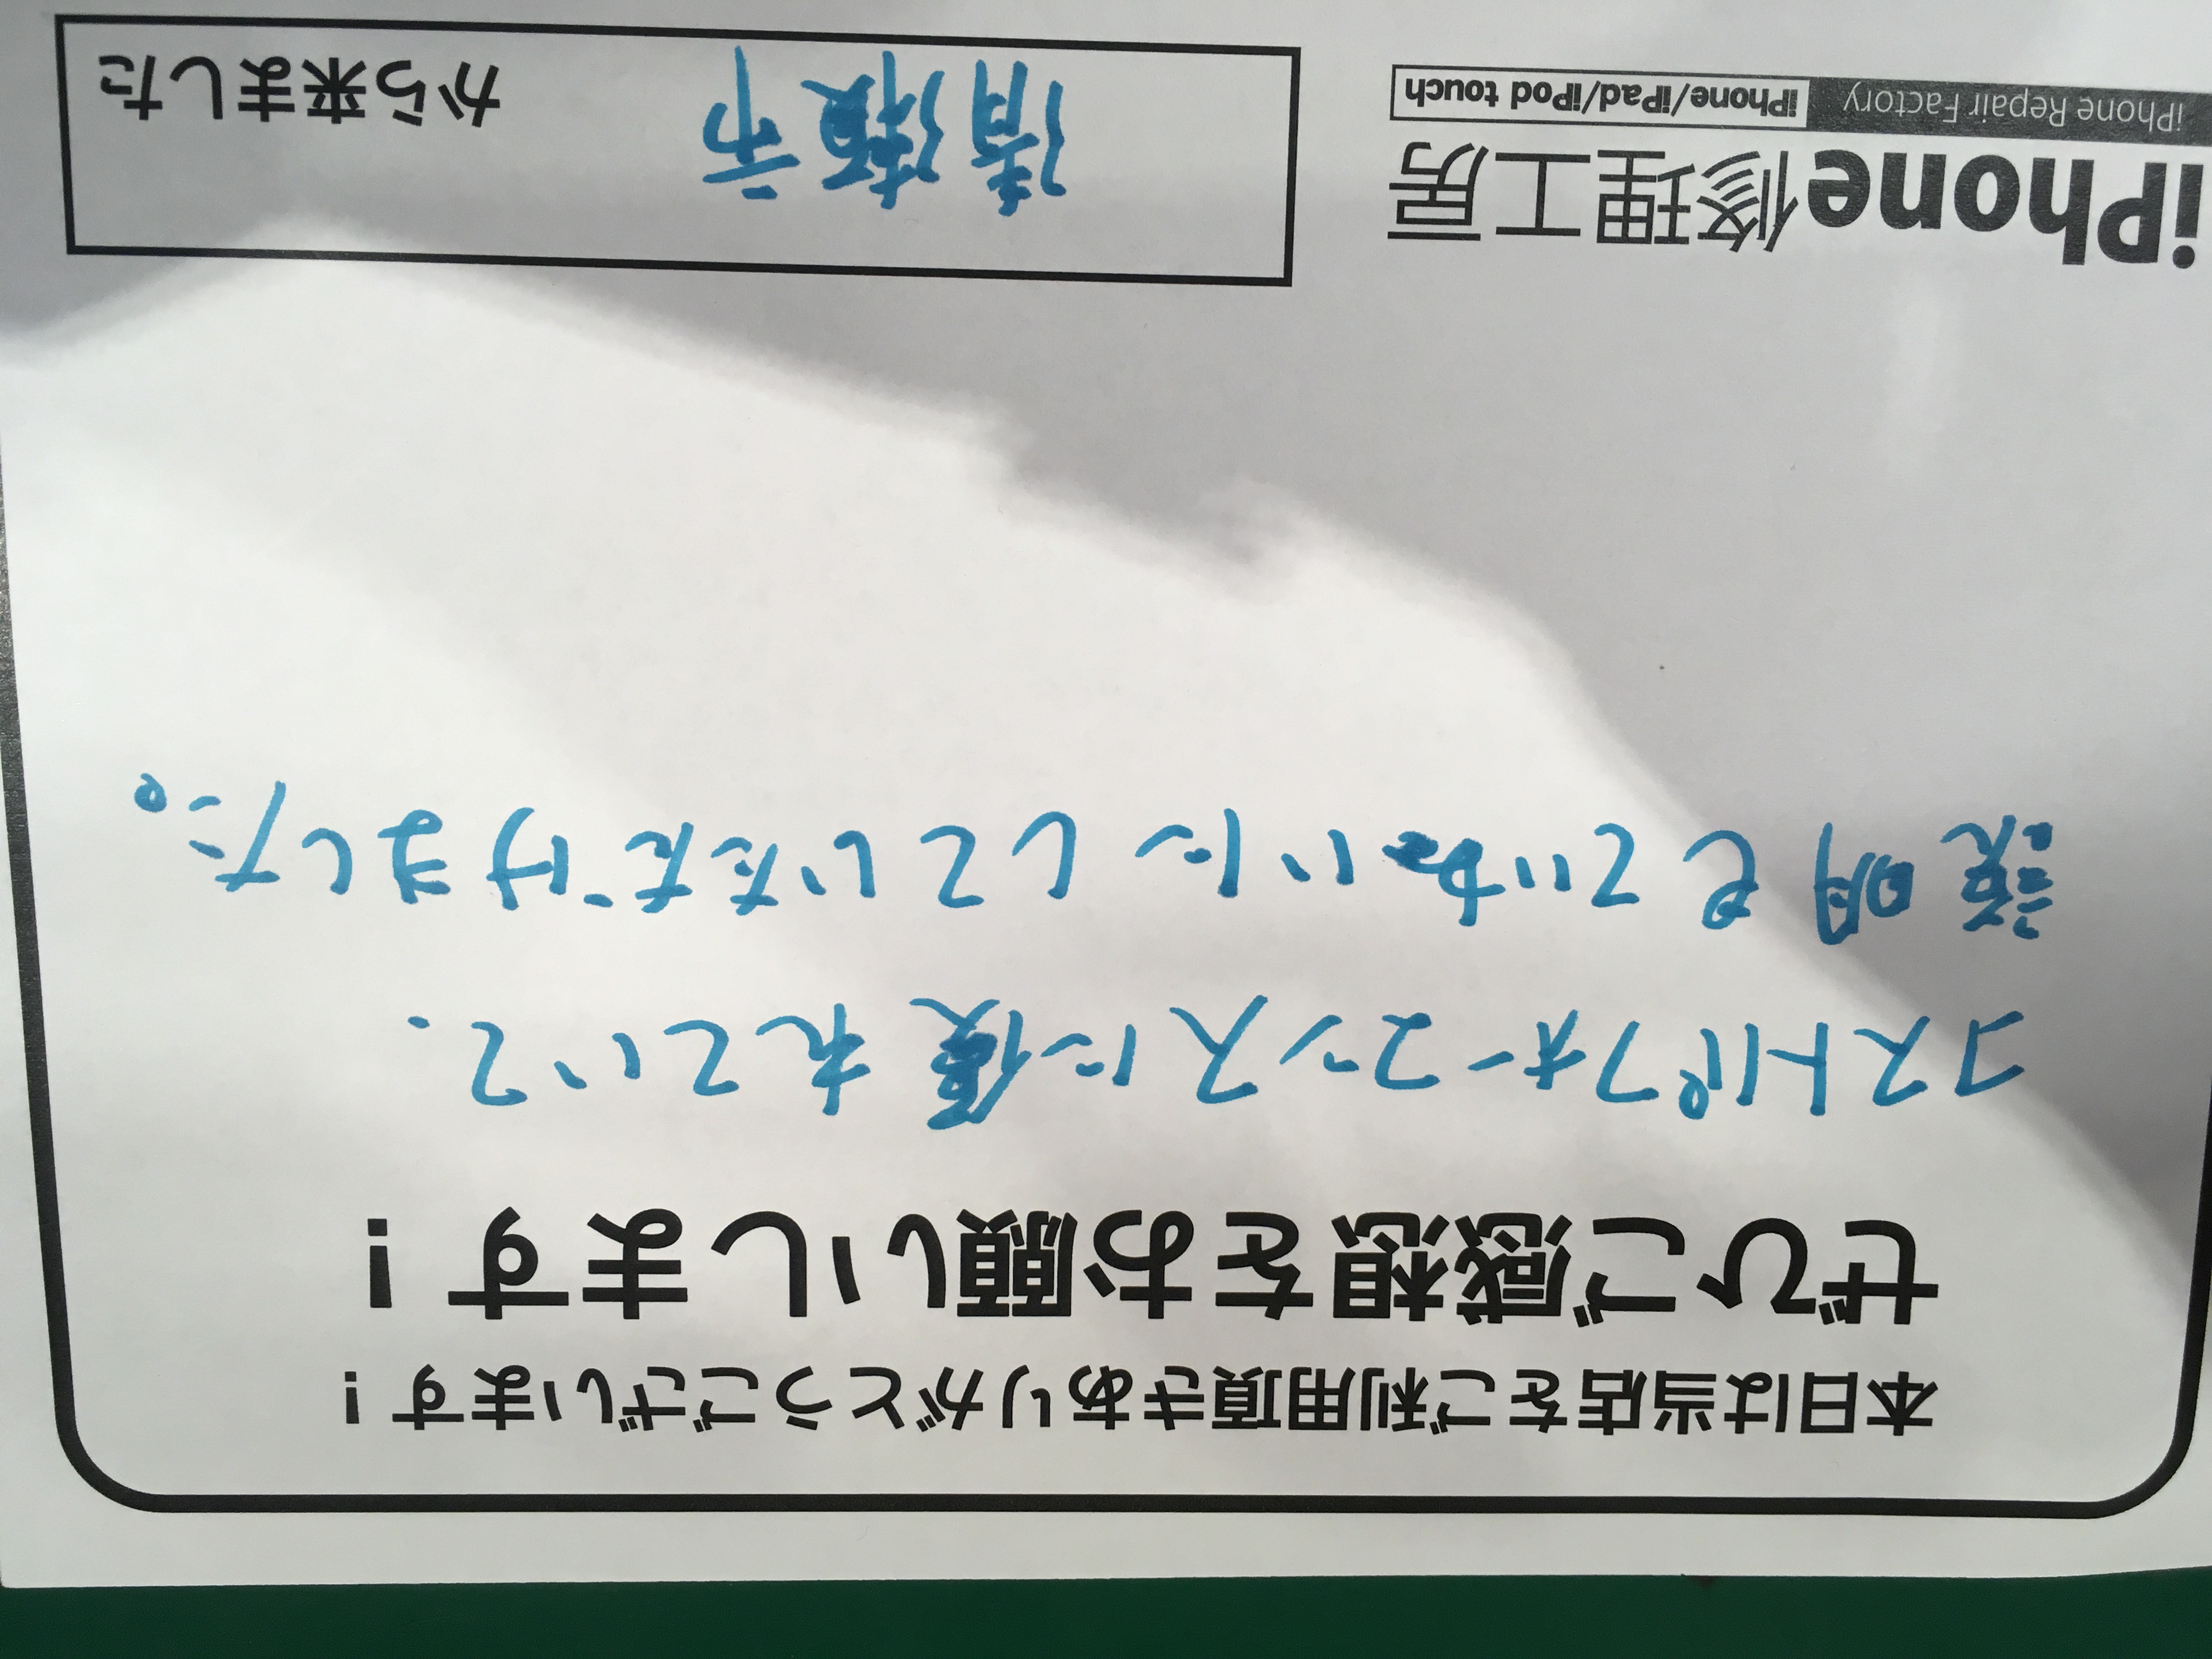 本日は当店をご利用頂きありがとうございます！
ぜひご感想をお願いします！
コストパフォーマンスに優れていて、
説明もていねいにしていただけました。
iPhone修理工房
iPhone Repair Factory iPhone/iPad/iPod touch
清瀬市 から来ました